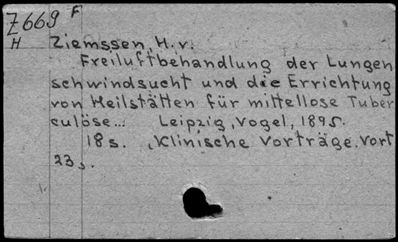 Z669 F
H Ziemssen, H. v.
Freiluftbehandlung der Lungen
schwindsucht und die Errichtung
von Heilstätten für mittellose Tuber
culöse... Leipzig, Vogel, 1895.
18 s. (Klinische Vorträge. Vort
23).